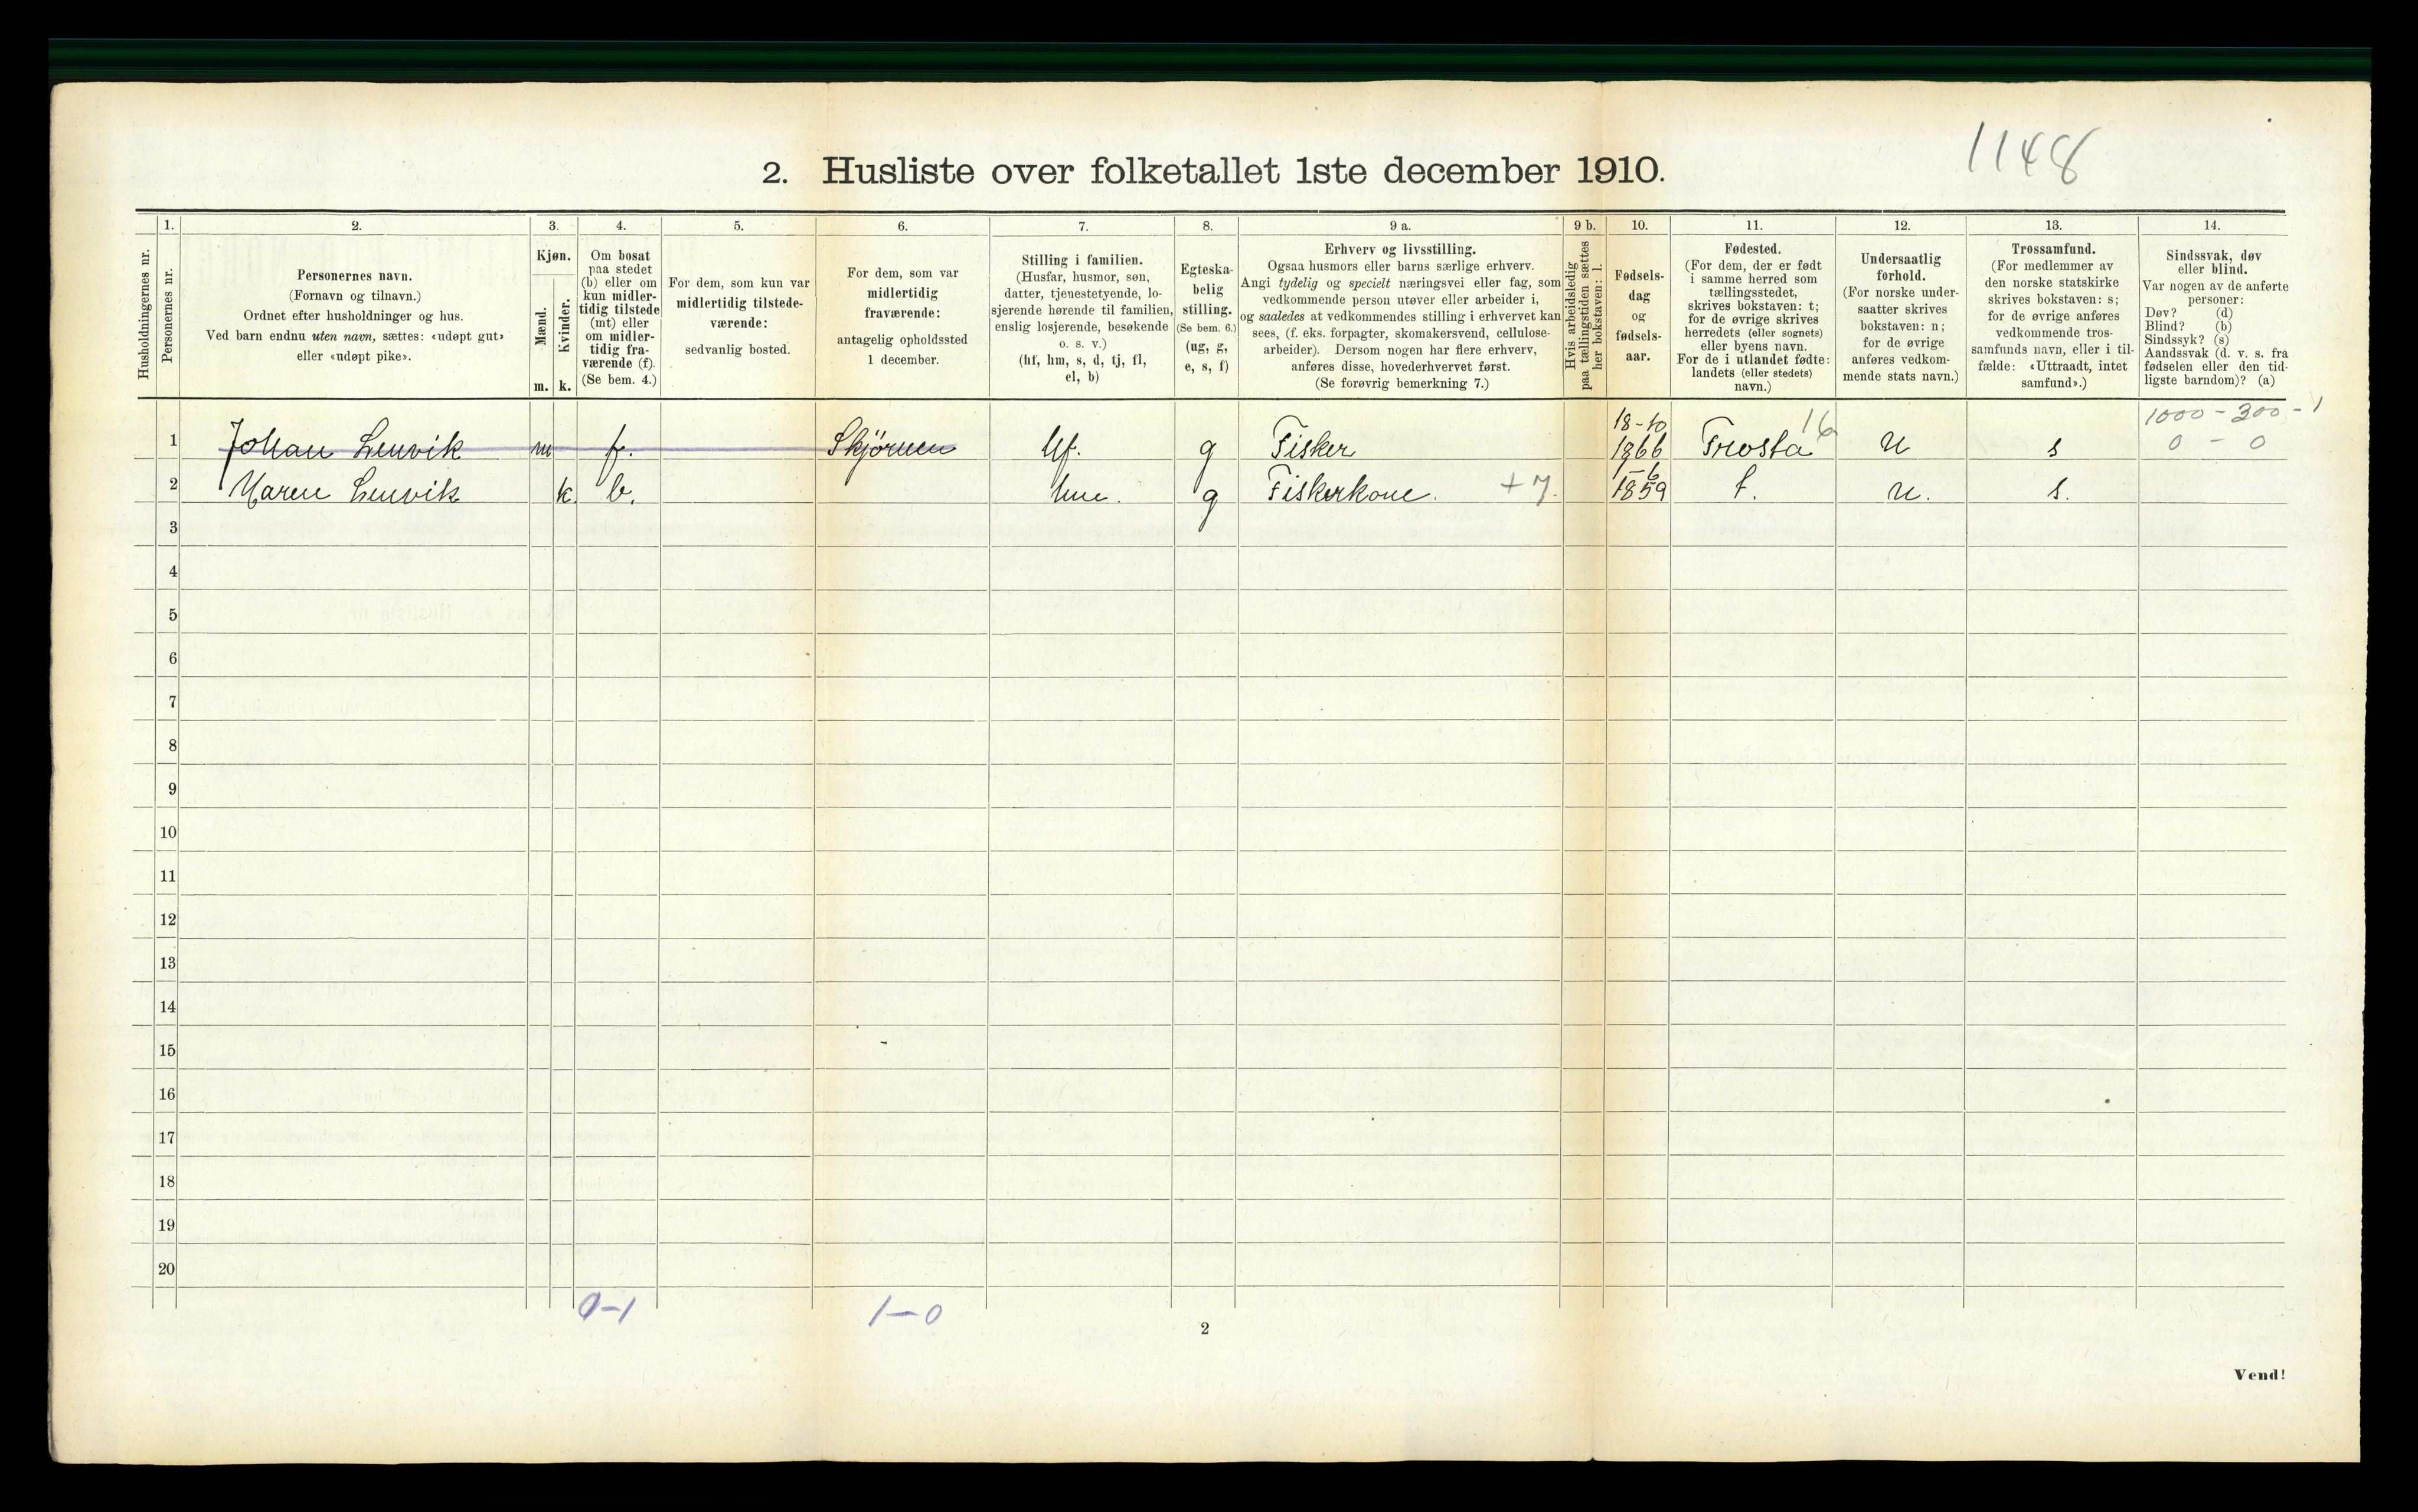 1148
2. Husliste over folketallet 1ste december 1910.
Husholdningernes nr.
1.
Personernes nr.
2.
Personernes navn.
(Fornavn og tilnavn.)
Ordnet efter husholdninger og hus.
Ved barn endnu uten navn, sættes: «udøpt gut»
eller «udøpt pike».
3.
Kjøn.
Mænd.
Kvinder.
m. k.
4.
Om bosat
paa stedet
(b) eller om
kun midler-
tidig tilstede
(mt) eller
om midler-
tidig fra-
værende (f).
(Se bem. 4.)
5.
For dem, som kun var
midlertidig tilstede-
værende:
sedvanlig bosted.
6.
For dem, som var
midlertidig
fraværende:
antagelig opholdssted
1 december.
7.
Stilling i familien.
(Husfar, husmor, søn,
datter, tjenestetyende, lo-
sjerende hørende til familien,
enslig losjerende, besøkende
o. s. v.)
(hf, hm, s, d, tj, fl,
el, b)
8.
Egteska-
belig
stilling.
(Se bem. 6.)
(ug, g,
e, s, f)
9 a.
Erhverv og livsstilling.
Ogsaa husmors eller barns særlige erhverv.
Angi tydelig og specielt næringsvei eller fag, som
vedkommende person utøver eller arbeider i,
og saaledes at vedkommendes stilling i erhvervet kan
sees, (f. eks. forpagter, skomakersvend, cellulose-
arbeider). Dersom nogen har flere erhverv,
anføres disse, hovederhvervet først.
(Se forøvrig bemerkning 7.)
9 b.
Hvis arbeidsledig
paa tællingstiden sættes
her bokstaven: l.
10.
Fødsels-
dag
og
fødsels-
aar.
11.
Fødested.
(For dem, der er født
i samme herred som
tællingsstedet,
skrives bokstaven: t;
for de øvrige skrives
herredets (eller sognets)
eller byens navn.
For de i utlandet fødte:
landets (eller stedets)
navn.)
12.
Undersaatlig
forhold.
(For norske under-
saatter skrives
bokstaven: n;
for de øvrige
anføres vedkom-
mende stats navn.)
13.
Trossamfund.
(For medlemmer av
den norske statskirke
skrives bokstaven: s;
for de øvrige anføres
vedkommende tros-
samfunds navn, eller i til-
fælde: «Uttraadt, intet
samfund».)
14.
Sindssvak, døv
eller blind.
Var nogen av de anførte
personer:
Døv? (d)
Blind? (b)
Sindssyk? (s)
Aandssvak (d. v. s. fra
fødselen eller den tid-
ligste barndom)? (a)
1000 - 300 - 1
0 - 0
1 Johan Lenvik m f. Skjørnen hf. g Fisker 18-10 1866 Frosta 16 n s
2 Maren Lenvik k. b. hm. g Fiskerkone. +7. 1-6 1859 t. n. s.
3
4
5
6
7
8
9
10
11
12
13
14
15
16
17
18
19
20
0-1 1-0
2
Vend!